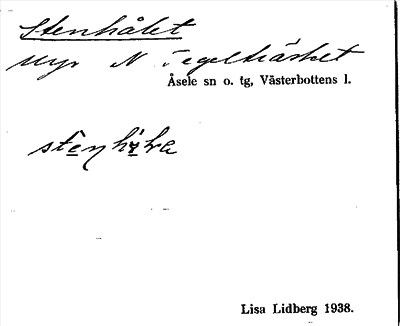 Stenhålet
Myr N Tegelträsket
Åsele sn o. tg, Västerbottens l.
Lisa Lidberg 1938.